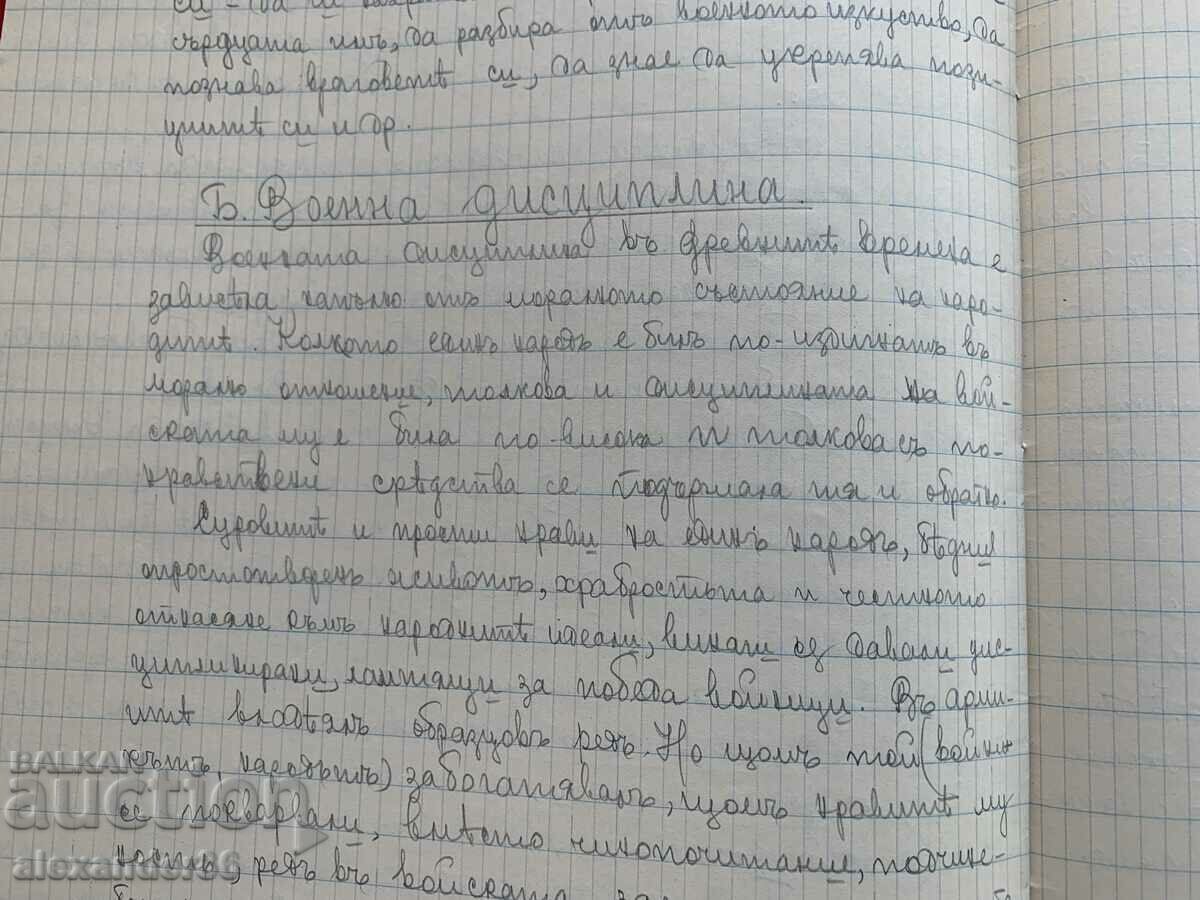 сърдцата имъ, да разбира отъ военното изкуство, да
познава враговетѣ си, да знае да укрепява пози-
циитѣ си и др.
Б. Военна дисциплина.
Военната дисциплина въ древнитѣ времена е
зависѣла напълно отъ моралното състояние на наро-
дитѣ. Колкото единъ народъ е билъ по-издигнатъ въ
морално отношение, толкова и дисциплината на вой-
ската му е била по-висока и толкова съ по-
нравствени срѣдства се подържала тя и обратно.
Суровитѣ и прости нрави на единъ народъ, бѣдния
простотвуренъ животъ, храбростьта и честното
отнасяне към народнитѣ идеали, винаги сѫ давали дис-
циплинирани, ламтящи за победа войници. Въ арми-
итѣ владѣялъ образцовъ редъ. Но щомъ той (войни-
кътъ, народътъ) забогатявалъ, щомъ нравитѣ му
се покваряли, вмѣсто чинопочитание, подчине-
ность, редъ въ войската
BALKAN
auction
alexander86